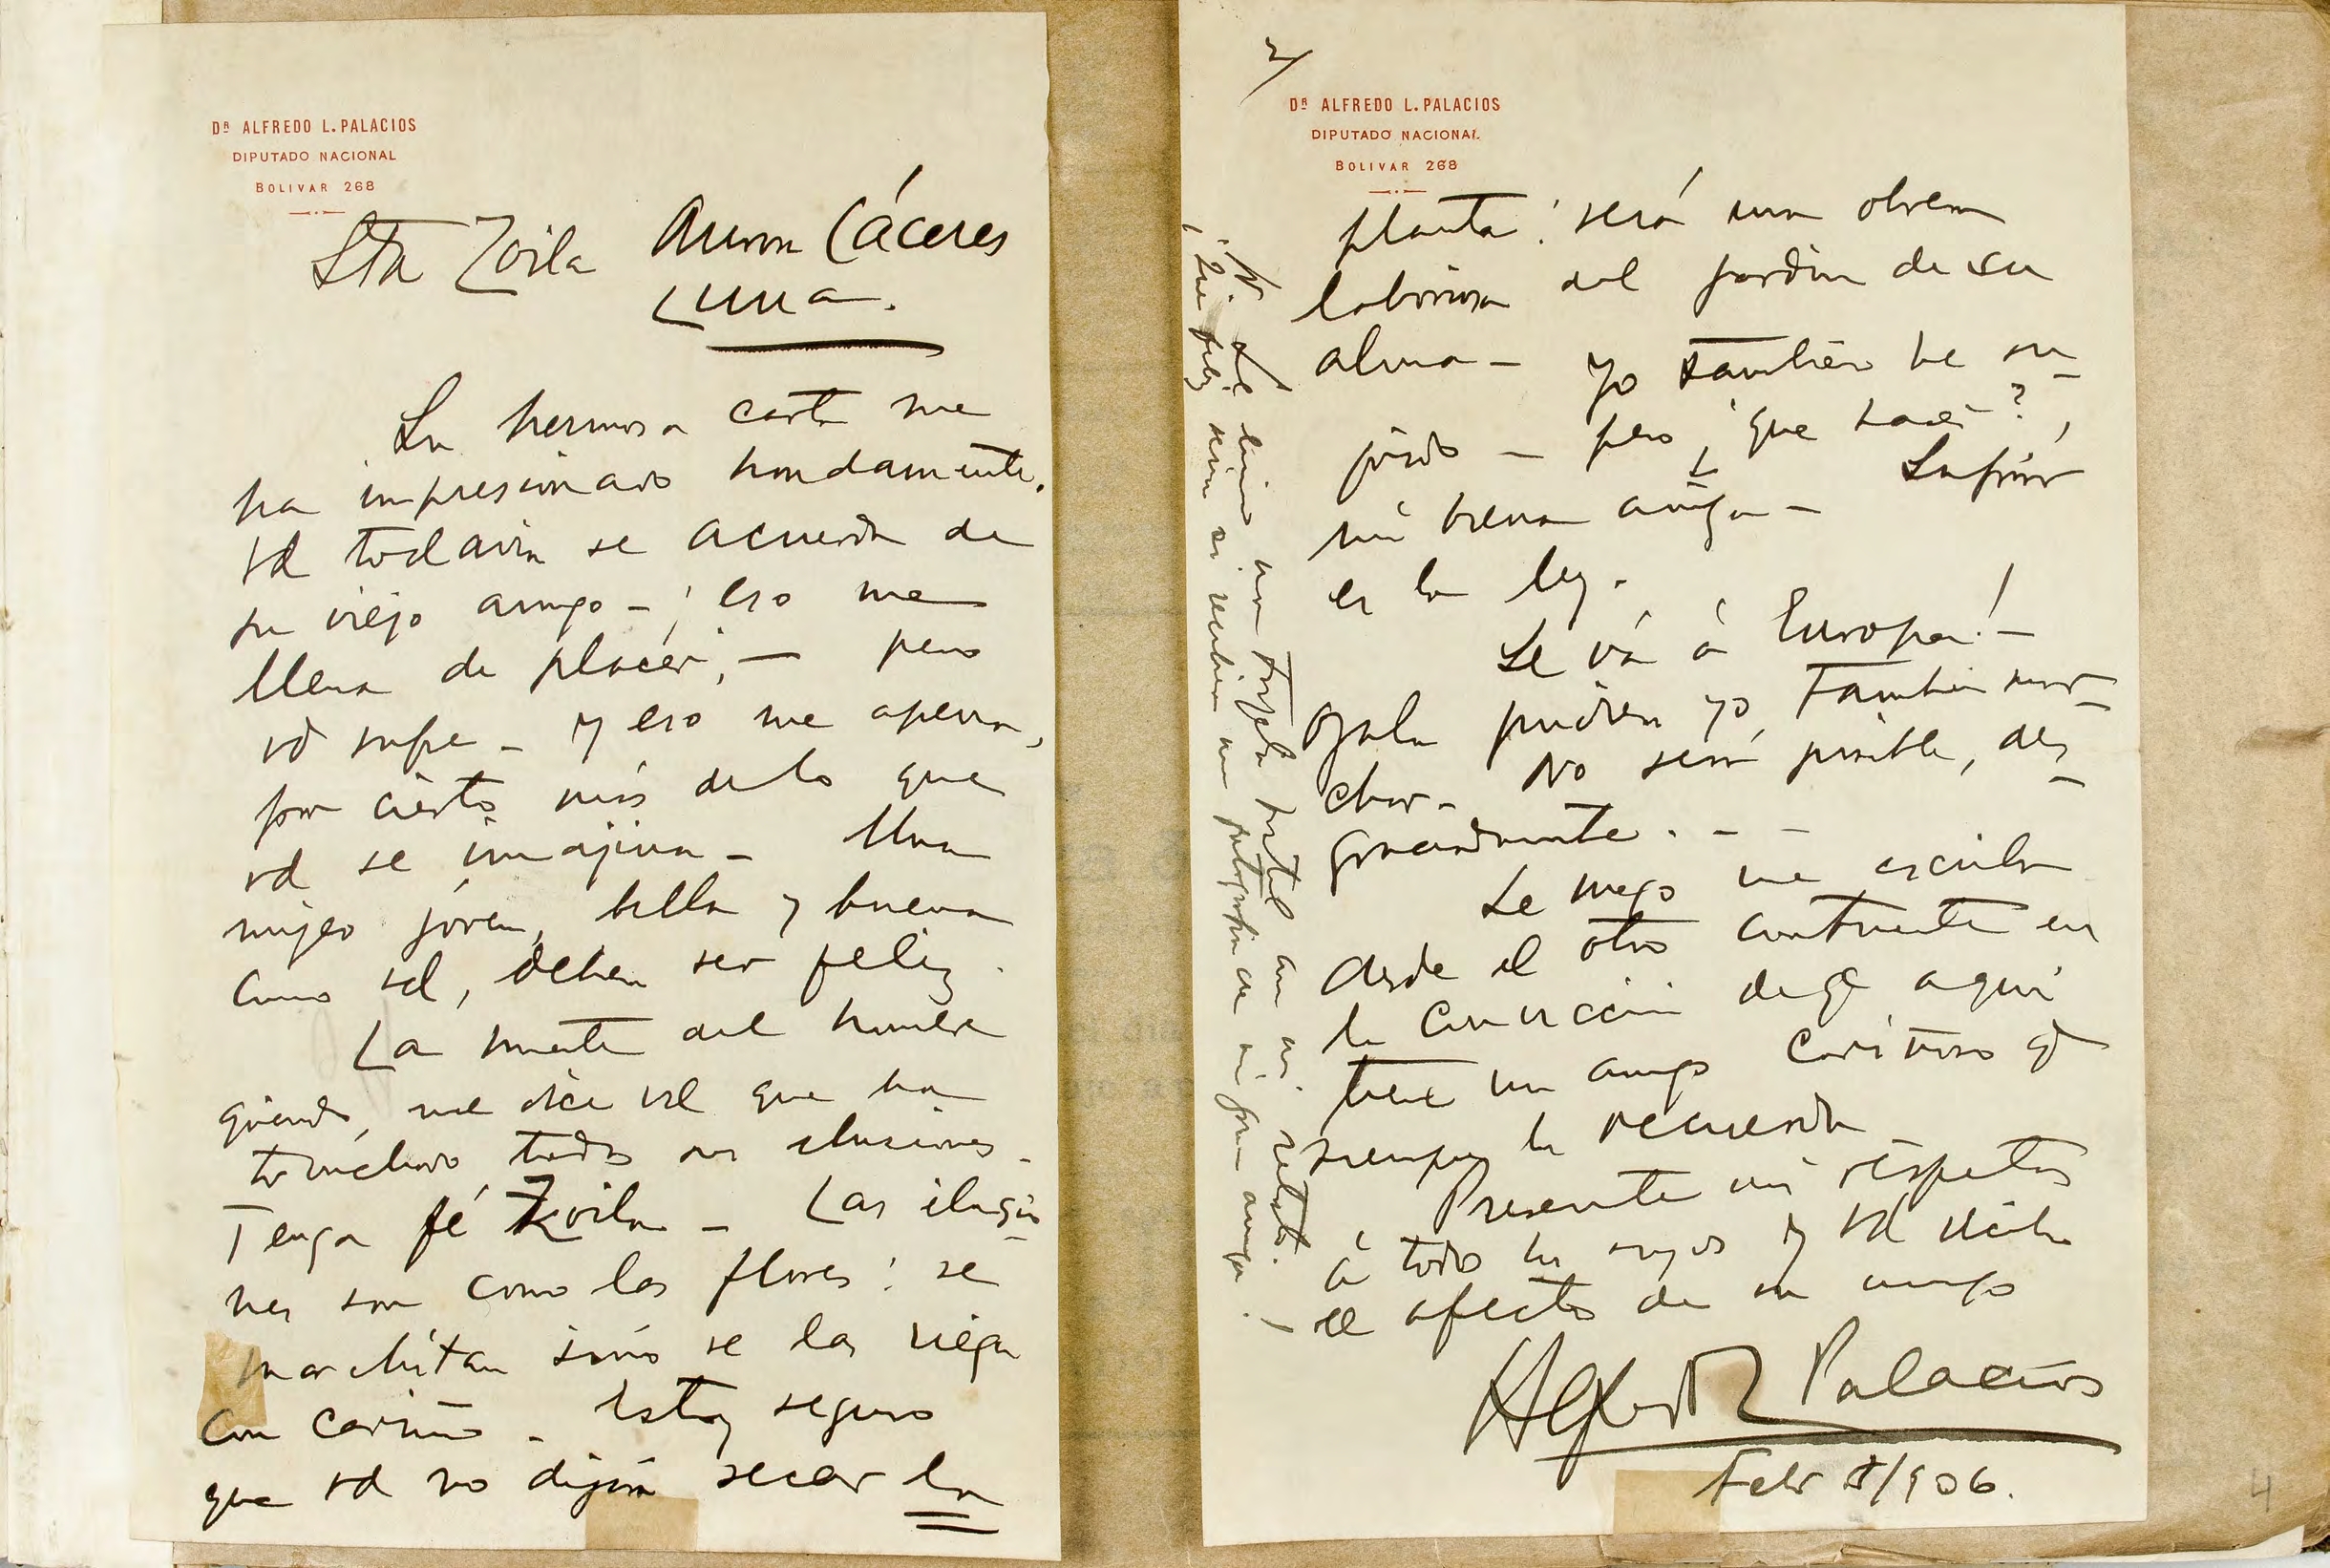 DR ALFREDO L. PALACIOS
DIPUTADO NACIONAL
BOLIVAR 268
Sta Zoila Aurora Cáceres
Lima.
Su hermosa carta me
ha impresionado hondamente.
Vd todavia se acuerda de
su viejo amigo – ; eso me
llena de placer, – pero
vd sufre – y eso me apena,
por cierto, más de lo que
vd se imajina – Una
mujer jóven, bella y buena
como vd, debia ser feliz.
La muerte del hombre
querido, me dice vd que ha
tronchado todas sus ilusiones –
Tenga fé Zoila – Las ilusio-
nes son como las flores: se
marchitan sino se las riega
con cariño – Estoy seguro
que vd no dejará secar la
2/
DR ALFREDO L. PALACIOS
DIPUTADO NACIONAL
BOLIVAR 268
planta: será una obrera
laboriosa del jardin de su
alma – Yo tambien he su-
frido – pero ¿que hacer?,
mi buena amiga – Sufrir
es la ley.
Se vá á Europa! –
Ojala pudiera yo tambien mar-
char – No será posible, des-
graciadamente. – –
Le ruego me escriba
desde el otro continente en
la conviccion de q aqui
tiene un amigo cariñoso q
siempre la recuerda –
Presente mis respetos
á todos los suyos y vd reciba
el afecto de su amigo
Alfredo L Palacios
Febr 8/906.
Le envio una tarjeta postal con mi retrato.
¡Que feliz seria si recibiera una fotografia de mi gran amiga!
4